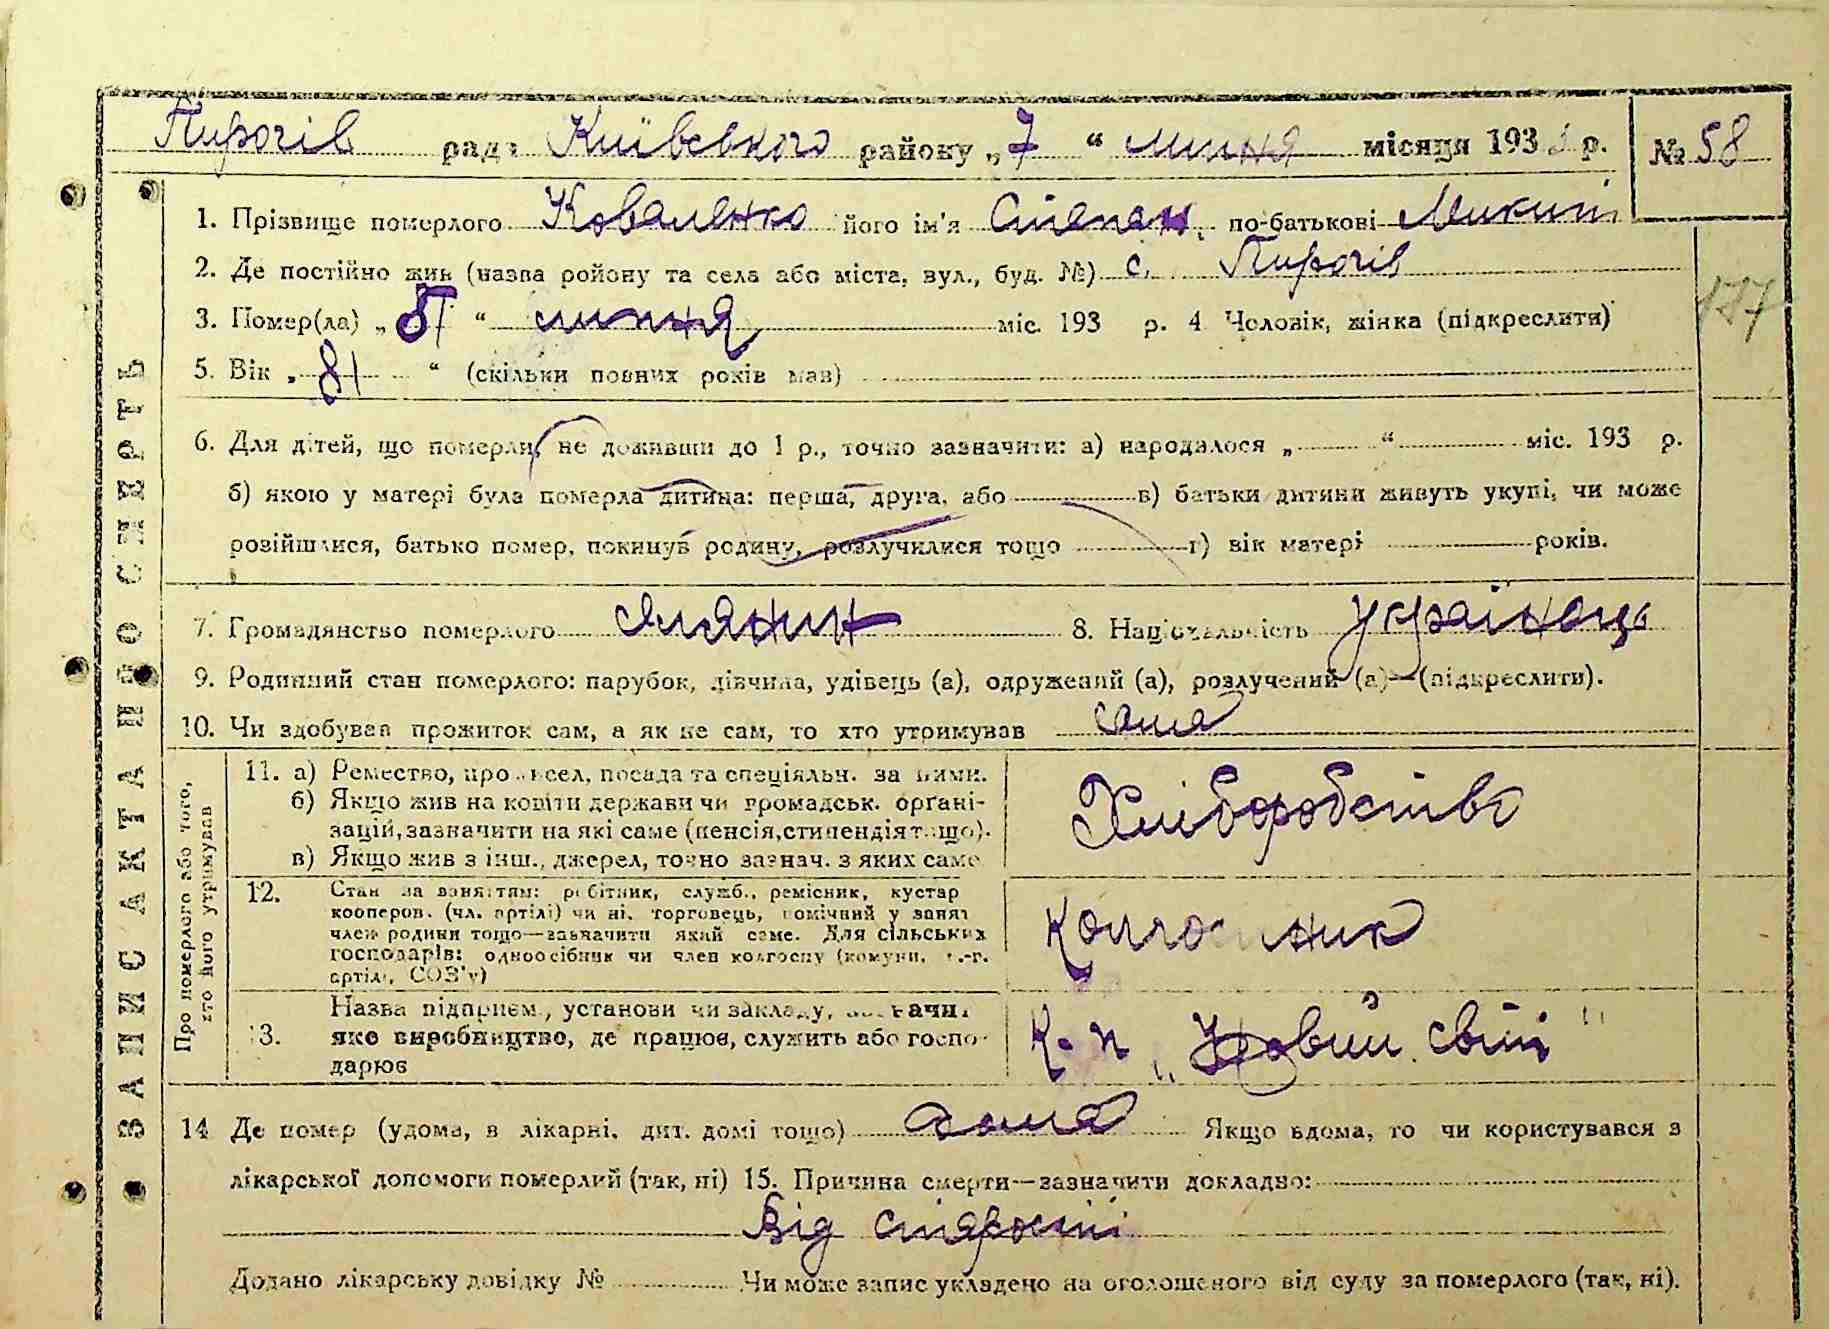 Пирогів рада Київського району „7“ липня місяця 193 р. № 58
1. Прізвище померлого Коваленко його ім'я Степан, по-батькові Микит
2. Де постійно жив (назва ройону та села або міста, вул., буд. №) с. Пирогів
3. Помер(ла) „ “ липня міс. 193 р. 4 Чоловік, жінка (підкреслити)
127
5. Вік „81“ (скільки повних років мав)
6. Для дітей, що померли, не доживши до 1 р., точно зазначити: а) народилося „ “ міс. 193 р.
б) якою у матері була померла дитина: перша, друга, або в) батьки дитини живуть укупі, чи може
розійшлися, батько помер, покинув родину, розлучилися тощо г) вік матері років.
7. Громадянство померлого 8. Національність українець
9. Родинний стан померлого: парубок, дівчина, удівець (а), одружений (а), розлучений (а)—(підкреслити).
10. Чи здобував прожиток сам, а як не сам, то хто утримував сам
ЗАПИС АКТА ПРО СМЕРТЬ
Про померлого або того, хто його утримував
11. а) Ремество, промисел, посада та спеціяльн. за ними.
б) Якщо жив на кошти держави чи громадськ. органі-
зацій, зазначити на які саме (пенсія, стипендія тощо).
в) Якщо жив з інш., джерел, точно зазнач. з яких саме
Хліборобство
12. Стан за заняттям: робітник, служб., ремісник, кустар
кооперов. (чл. артілі) чи ні, торговець, помічний у занят
член родини тощо—зазначити який саме. Для сільських
господарів: одноосібник чи член колгоспу (комуни, с.-г.
артілі, СОЗ'у)
Колгоспник
13. Назва підприєм., установи чи закладу, зазначит
яке виробництво, де працює, служить або госпо-
дарює
К-п „Новий світ“
14 Де помер (удома, в лікарні, дит. домі тощо) дома Якщо вдома, то чи користувався з
лікарської допомоги померлий (так, ні) 15. Причина смерти—зазначити докладно:
Від старости
Додано лікарську довідку № Чи може запис укладено на оголошеного від суду за померлого (так, ні).